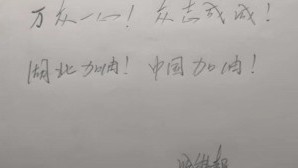 万众一心！众志成城！
湖北加油！中国加油！